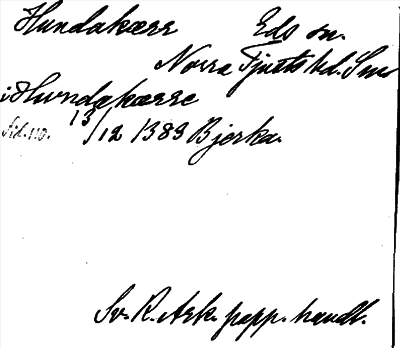 Hundakærr Eds sn.
Norra Tjusts hd. Sm
i Hundakærre
Sid. no. 13/12 1383 Bjerka.
Sv. R. Ark. papp. handl.